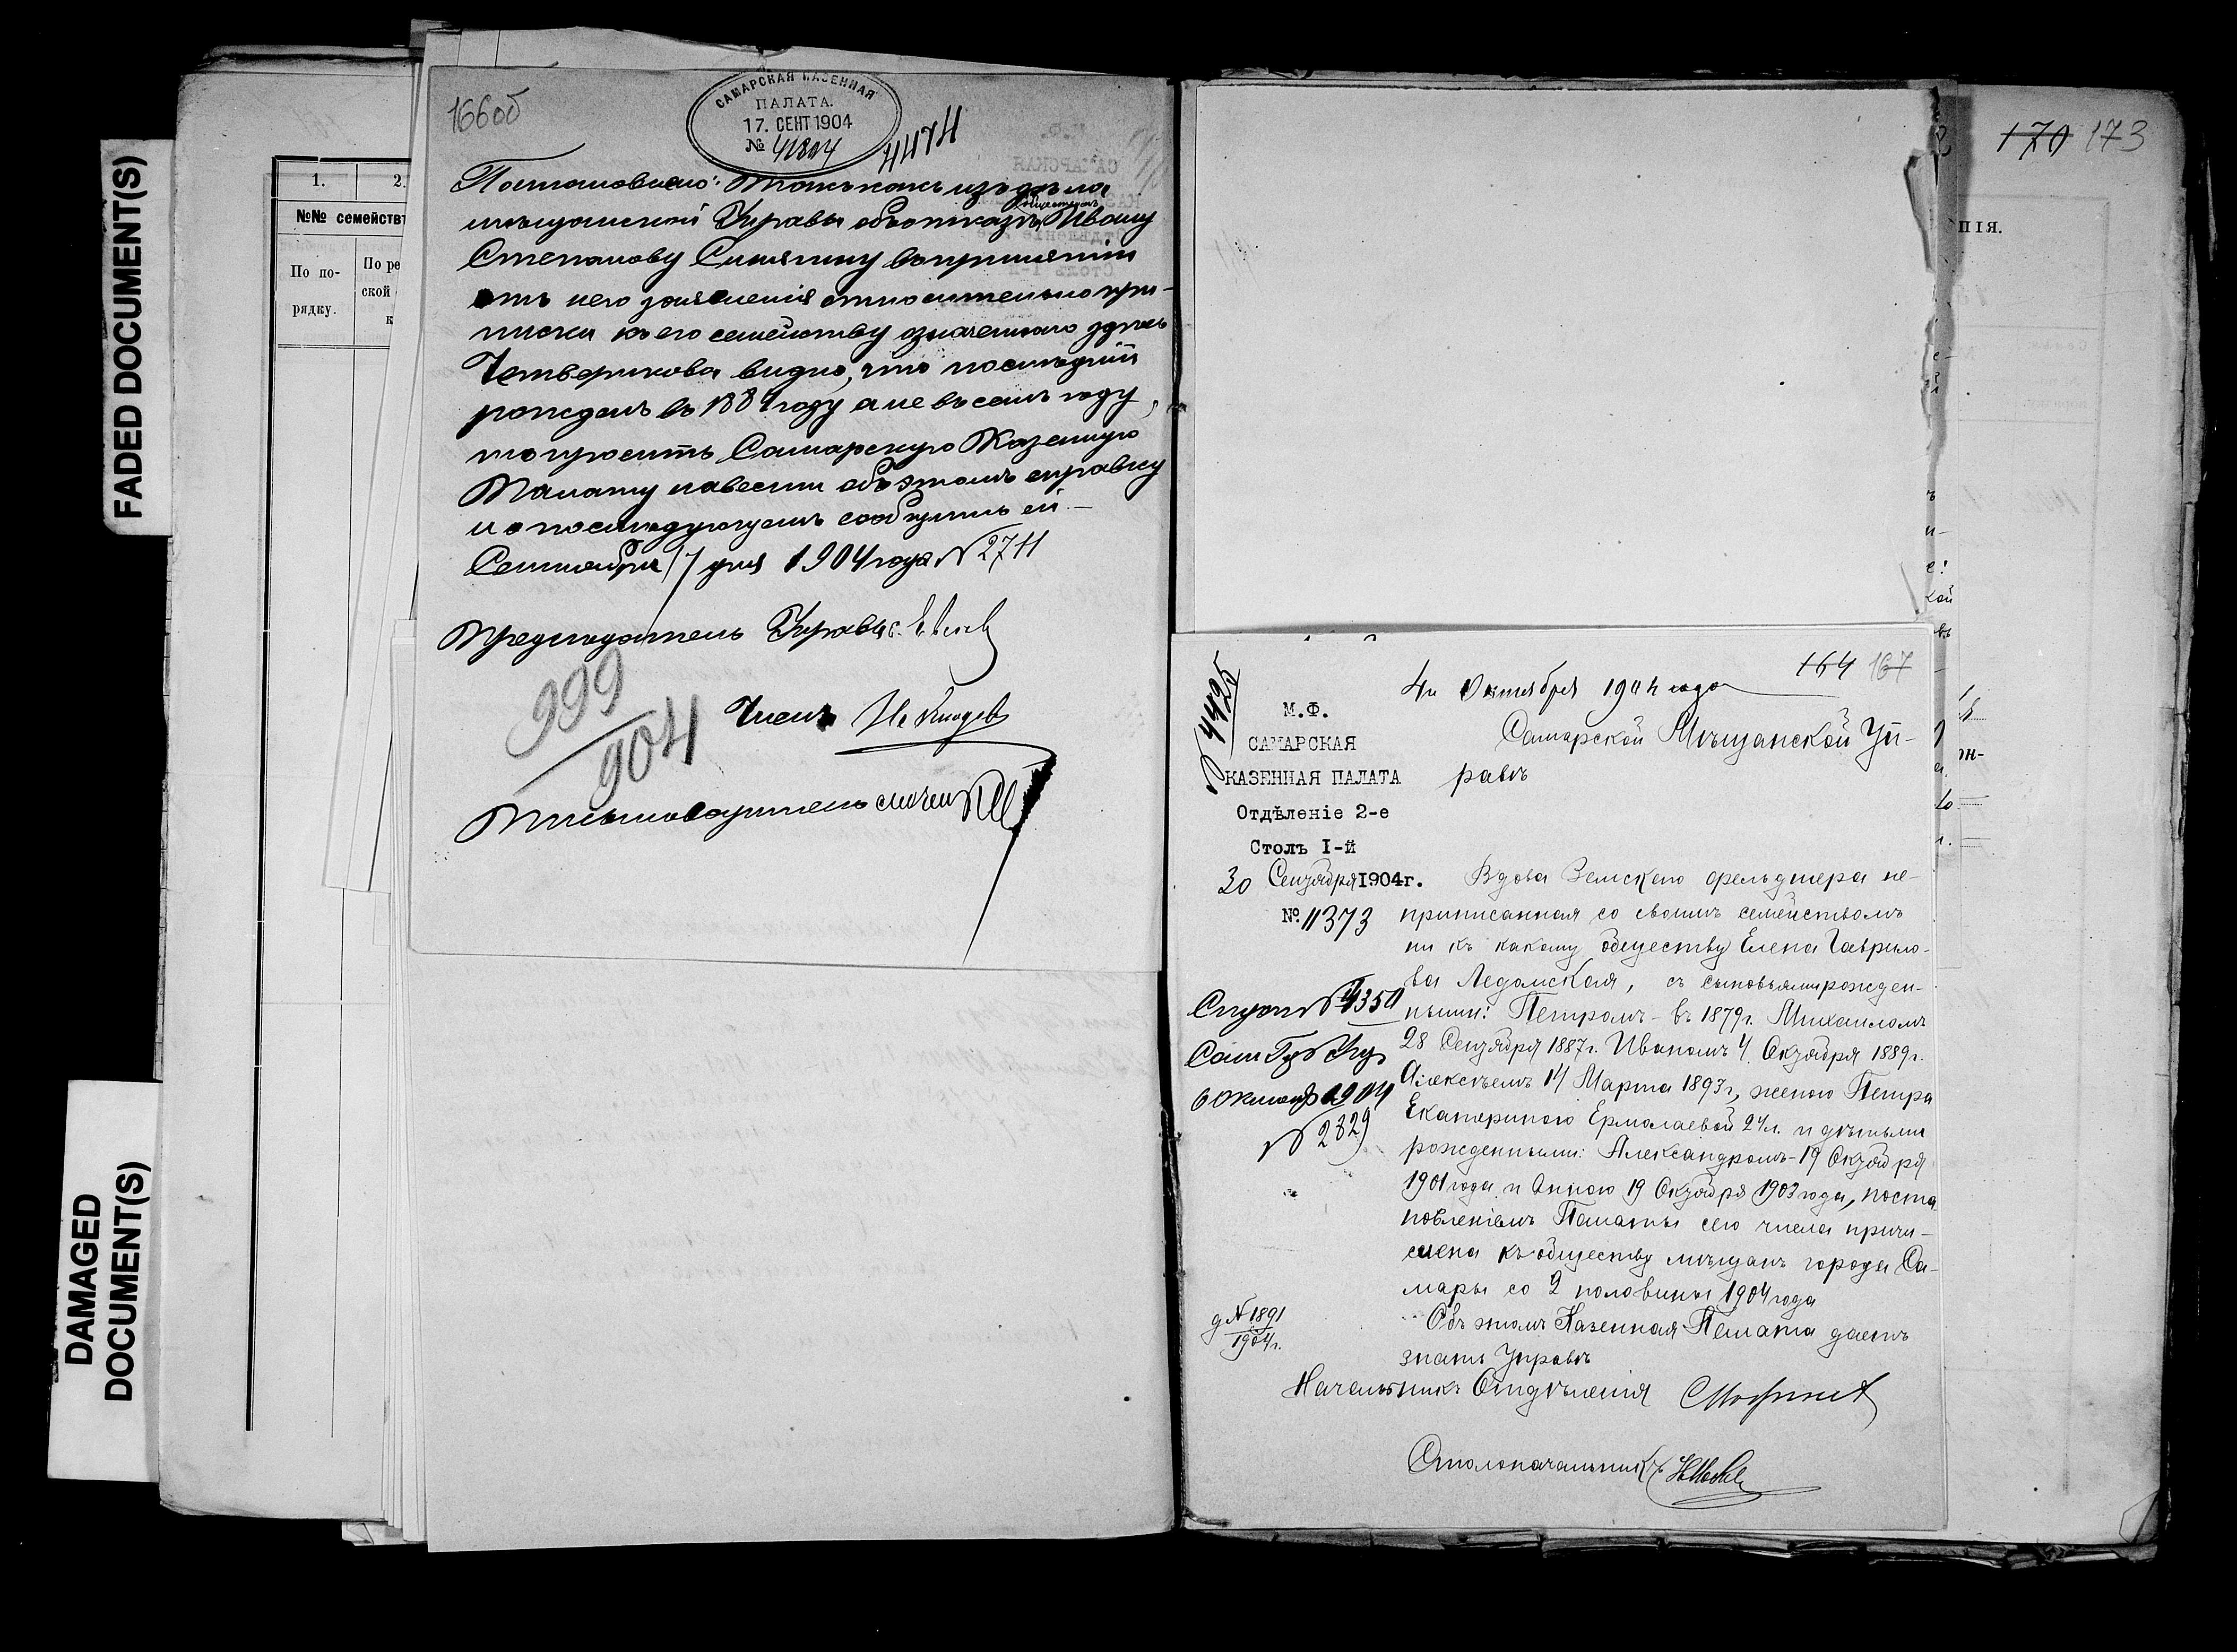 FADED DOCUMENT(S)
DAMAGED
DOCUMENT(S)
1.
2.
№№ семейств
По по-
рядку.
По ре
ской
к
166об
САМАРСКАЯ КАЗЕННАЯ
ПАЛАТА.
17. СЕНТ 1904
№ 41804
4474
Постановлено: Такъ какъ изъ дѣла
мѣщанской Управы объ отказѣ обществомъ Ивану
Степанову въ принятіи
отъ него заявленія относительно при-
писки къ его семейству означеннаго здѣсь
Четверикова видно, что послѣдній
рожденъ въ 1884 году а не въ семъ году,
то просить Самарскую Казенную
Палату навести объ этомъ справку
и о послѣдующемъ сообщить ей. —
Сентября 17 дня 1904 года № 2711
Предсѣдатель Управы
Членъ
999
904
Письмоводитель
170 173
ПІЯ.
164 167
№ 4425
4го Октября 1904 года
М.Ф.
САМАРСКАЯ
КАЗЕННАЯ ПАЛАТА
Отдѣленіе 2-е
Столъ I-й
30 Сентября 1904г.
№ 11373
Самарской Мѣщанской Уп-
равѣ
Вдова Земскаго фельдшера не-
приписанная со своимъ семействомъ
ни къ какому обществу Елена Гаврило-
ва Ледомская, съ сыновьями рожден-
ными: Петромъ - въ 1879г. Михаиломъ
28 Сентября 1887г. Иваномъ 4 Октября 1889г.
Алексѣемъ 14 Марта 1893г, женою Петра
Екатериною Ермолаевой 24л. и дѣтьми
рожденными: Александромъ - 19 Октября
1901 года и Анною 19 Октября 1903 года, поста
новленіемъ Палаты сего числа причи-
слена къ обществу мѣщанъ города Са-
мары со 2 половины 1904 года
Объ этомъ Казенная Палата даетъ
знать Управѣ
№ 4350
6 Октяб 1904
№ 2829
д № 1891
1904г.
Начальникъ Отдѣленія
Столоначальникъ